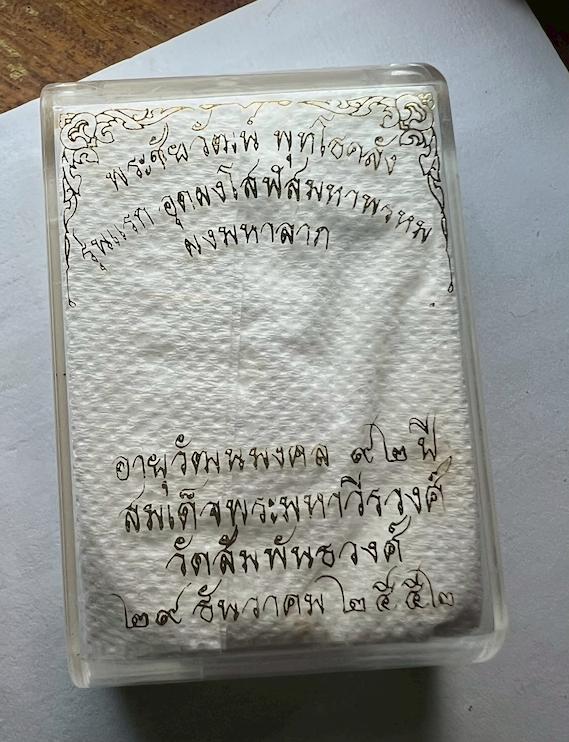 พระชัยวัฒน์ พุทโธคลัง
รุ่นแรก อุดผงโสฬสมหาพรหม
ผงมหาลาภ
อายุวัฒนมงคล ๙๒ ปี
สมเด็จพระมหาวีรวงศ์
วัดสัมพันธวงศ์
๒๙ ธันวาคม ๒๕๕๒